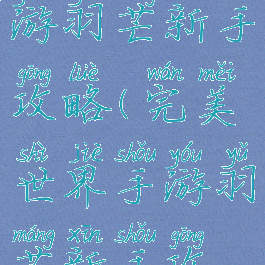 游羽芒新手
gōng lüè wán měi
攻略(完美
shì jiè shǒu yóu yǔ
世界手游羽
máng xīn shǒu gōng
芒新手攻